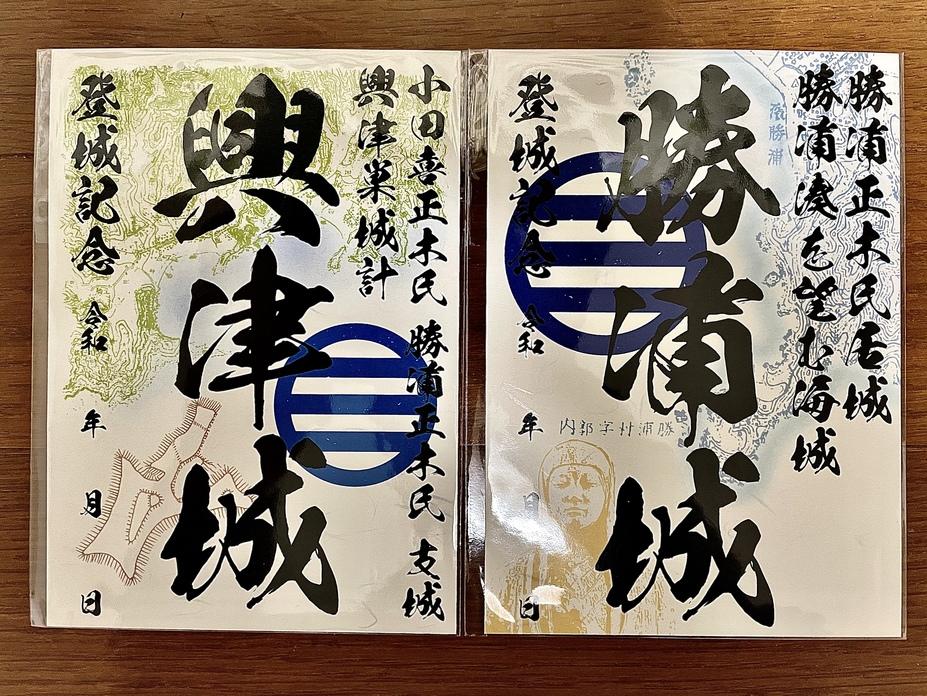 勝浦正木氏居城
勝浦湊を望む海城
勝浦城
勝浦村字部内
登城記念 令和 年 月 日
小田喜正木氏 勝浦正木氏 支城
興津巣城計
興津城
登城記念 令和 年 月 日